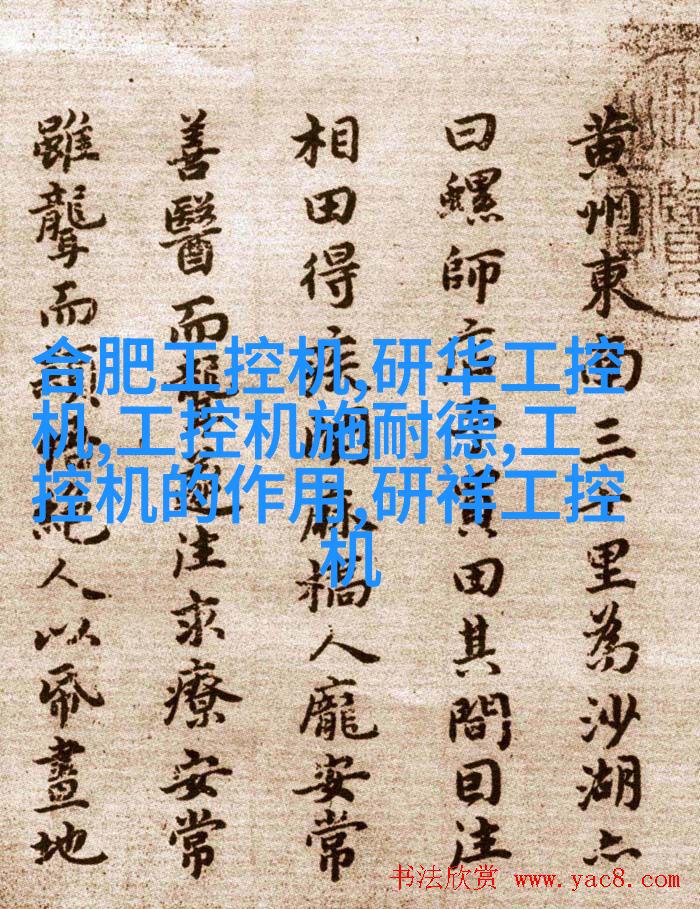 黄州東南三十里為沙湖亦
曰螺師店予買田其間囙往
相田得疾聞麻橋人龐安常
善醫而聾遂往求療安常
雖聾而穎悟絕人以帋畫地
合肥工控机,研华工控
机,工控机施耐德,工
控机的作用,研祥工控
机
书法欣赏 www.yac8.com